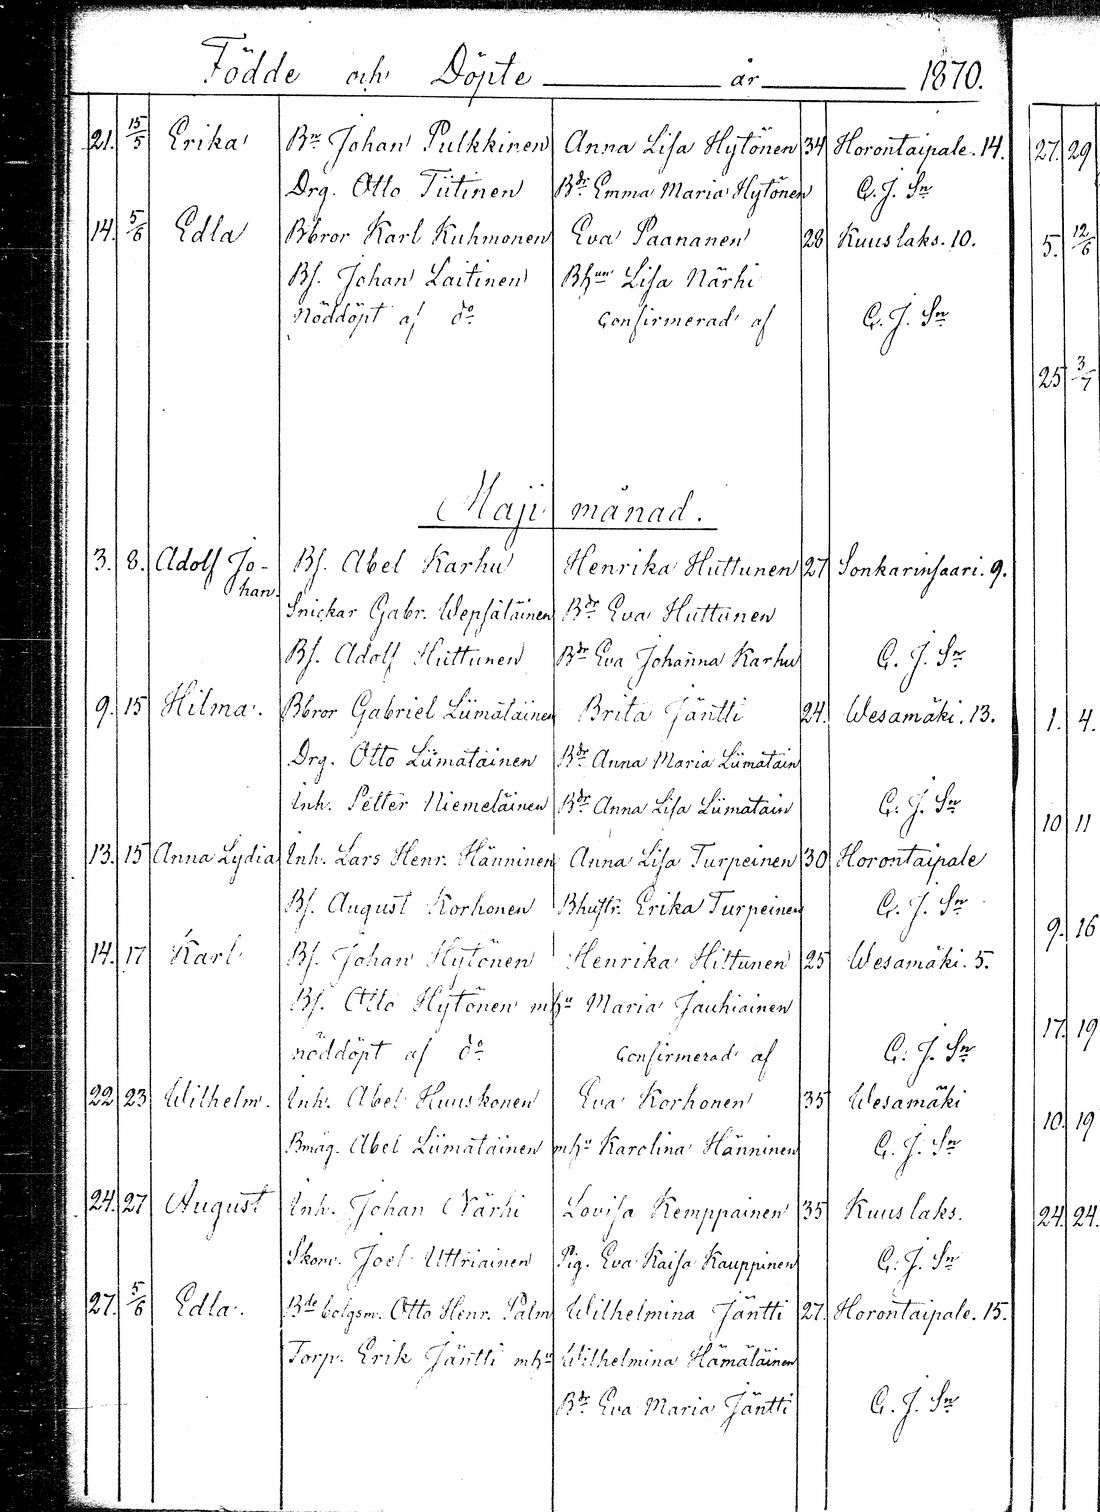 Födde och Döpte år 1870.
21. 15/5 Erika Bn Johan Pulkkinen Anna Lisa Hytönen 34 Horontaipale. 14. 27. 29
Drg. Otto Tiitinen Bdr Emma Maria Hytönen C. J. Sn
14. 5/6 Edla Bbror Karl Kuhmonen Eva Paananen 28 Kuuslaks. 10. 5. 12/6
Bs. Johan Laitinen Bhun Lisa Närhi
Nöddöpt af do Confirmerad af C. J. Sn
25 3/7
Maji månad.
3. 8. Adolf Jo- Bs. Abel Karhu Henrika Huttunen 27 Sonkarinsaari. 9.
han. Snickar Gabr. Wepsäläinen Bdr Eva Huttunen
Bs. Adolf Huttunen Bdr Eva Johanna Karhu C. J. Sn
9. 15 Hilma. Bbror Gabriel Liimatainen Brita Jäntti 24. Wesamäki. 13. 1. 4.
Drg. Otto Liimatainen Bdr Anna Maria Liimatain
Inh. Petter Niemeläinen Bdr Anna Lisa Liimatain C. J. Sn 10 11
13. 15 Anna Lydia Inh. Lars Henr. Hänninen Anna Lisa Turpeinen 30 Horontaipale
Bs. August Korhonen Bhustr. Erika Turpeinen C. J. Sn
9. 16
14. 17 Karl Bs. Johan Hytönen Henrika Hiltunen 25 Wesamäki. 5.
Bs. Otto Hytönen mhu Maria Jauhiainen
nöddöpt af do Confirmerad af C. J. Sn 17. 19
22 23 Wilhelm. Inh. Abel Huuskonen Eva Korhonen 35 Wesamäki
Bmåg. Abel Liimatainen mhu Karolina Hänninen C. J. Sn 10. 19
24. 27 August Inh. Johan Närhi Lovisa Kemppainen 35 Kuuslaks. 24. 24.
Skom. Joel Uttriainen Pig. Eva Kaisa Kauppinen C. J. Sn
27. 5/6 Edla. Bde bolgsm. Otto Henr. Palm Wilhelmina Jäntti 27. Horontaipale. 15.
Torp. Erik Jäntti mhu Wilhelmina Hämäläinen
Bdr Eva Maria Jäntti C. J. Sn